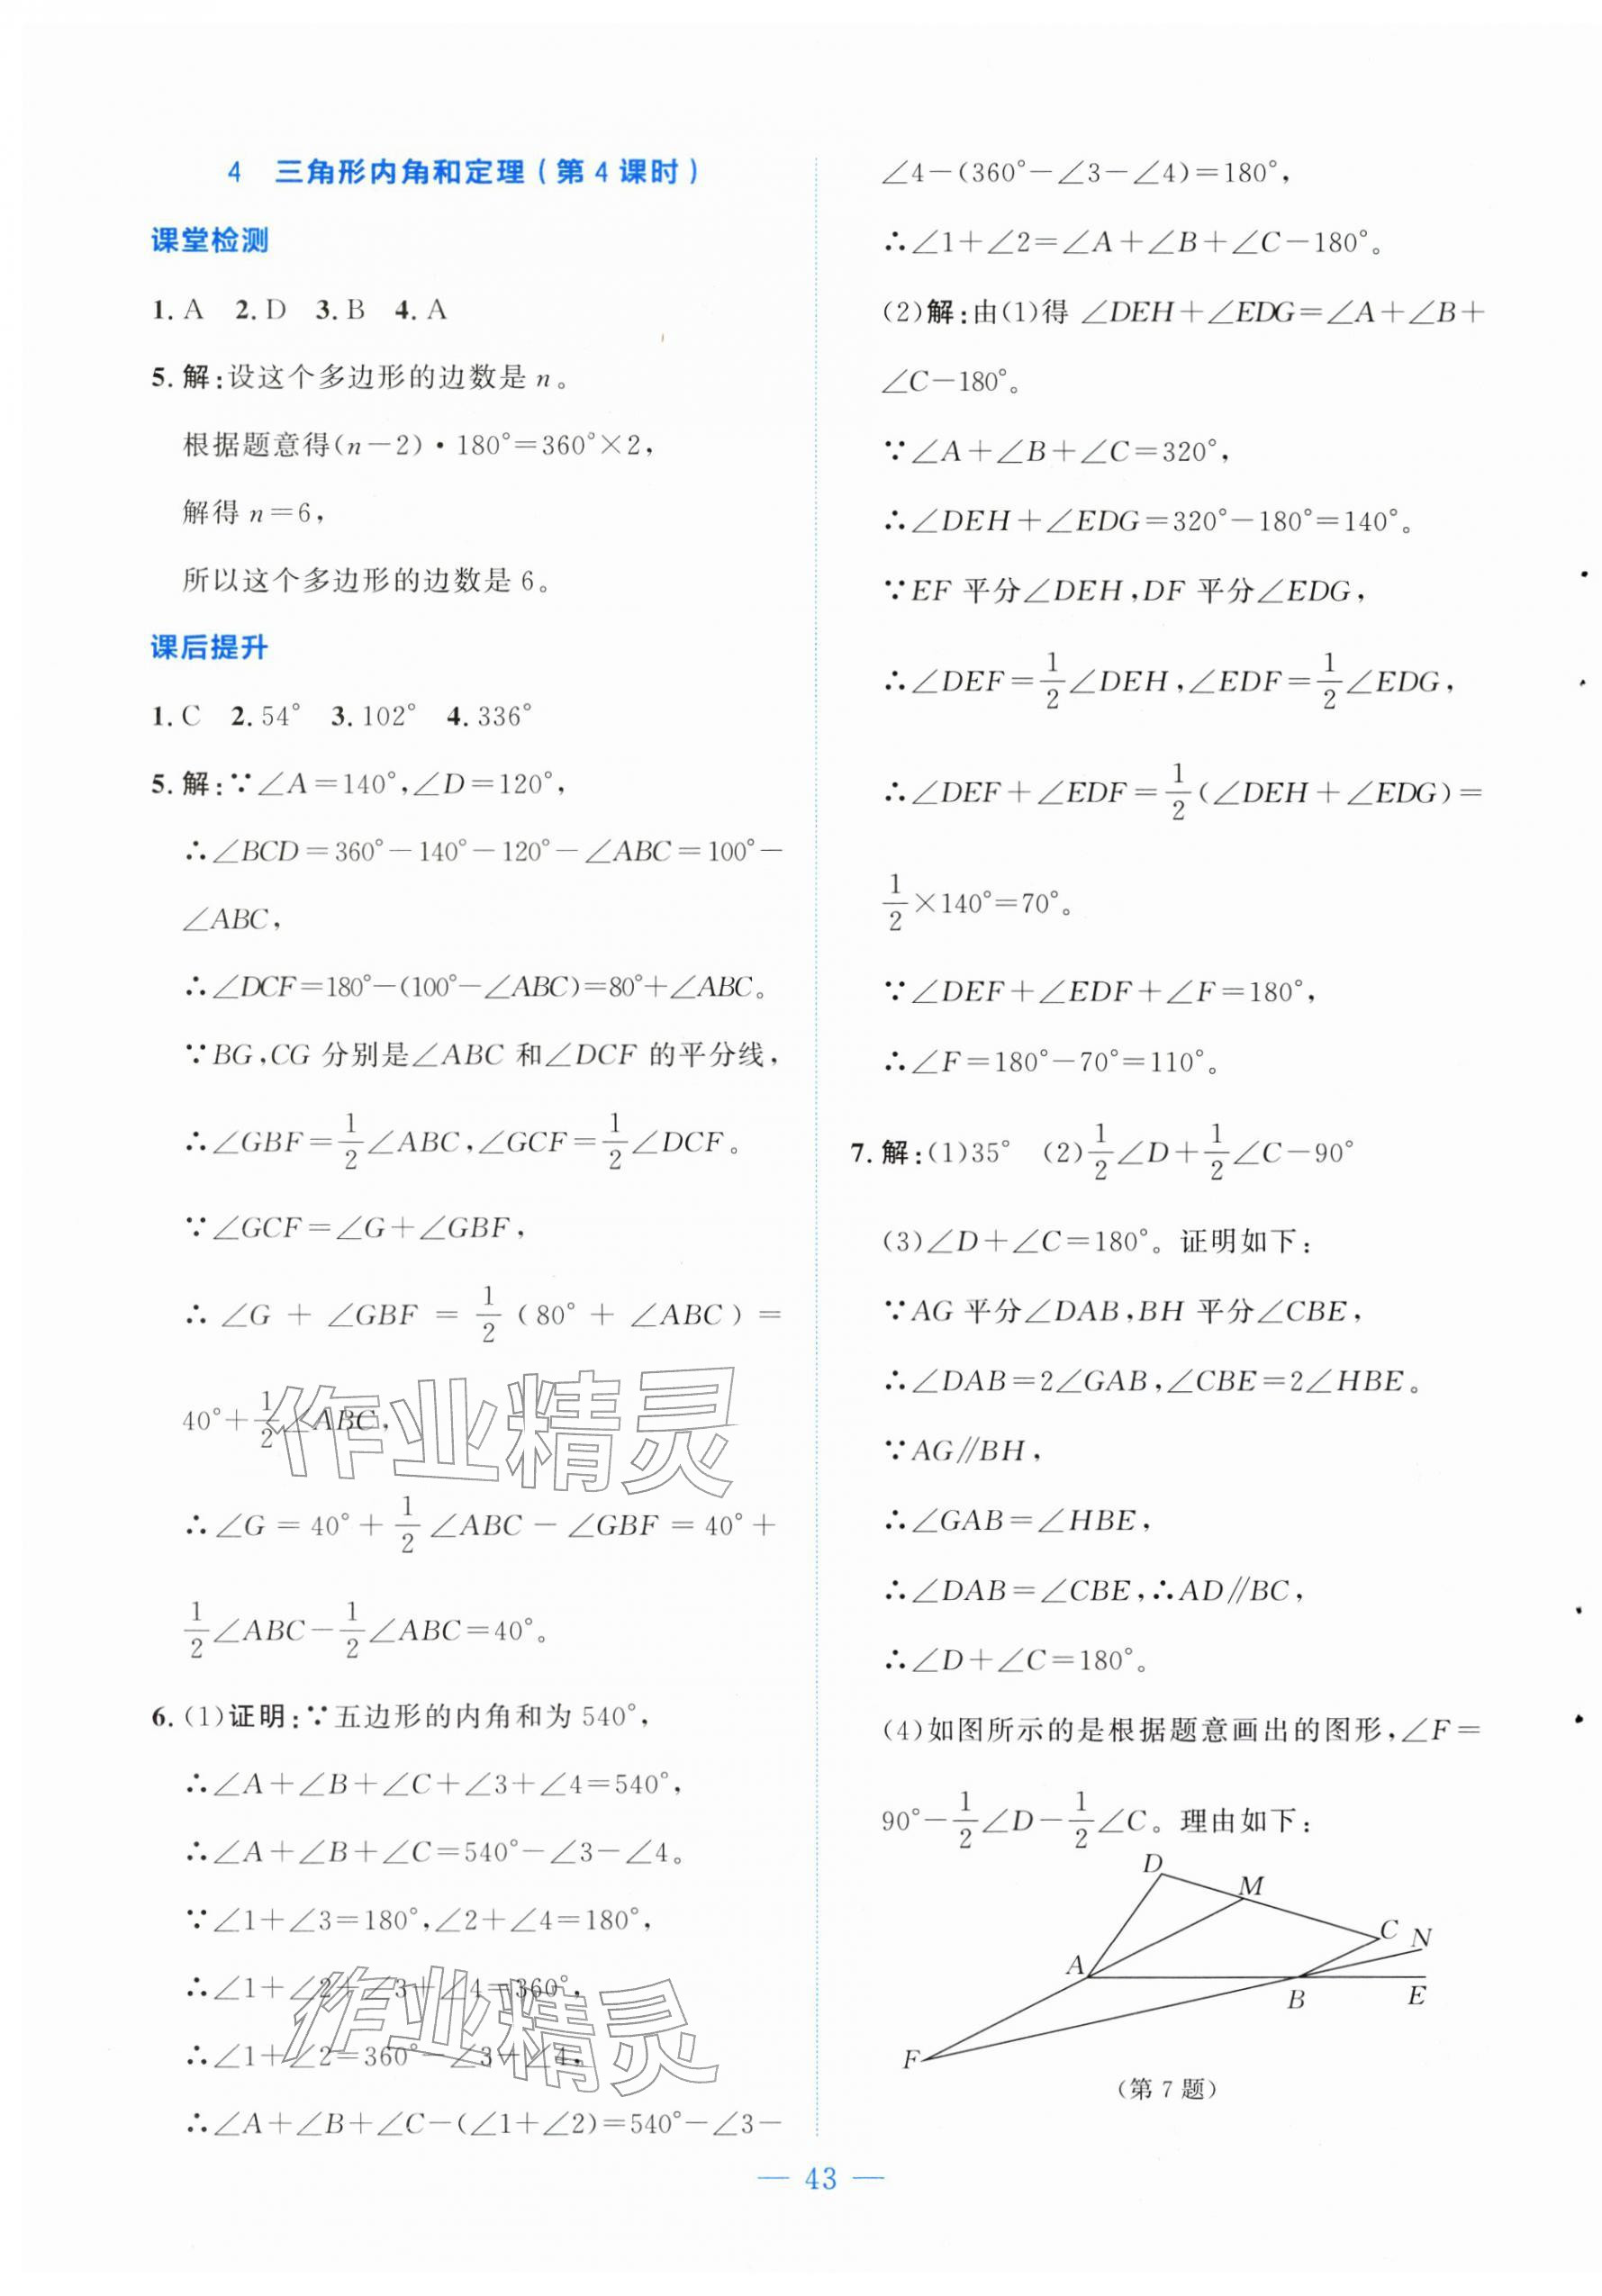 4 三角形内角和定理(第4课时)
课堂检测
1. A 2. D 3. B 4. A
5. 解:设这个多边形的边数是 n。
根据题意得(n－2)·180°=360°×2,
解得 n=6,
所以这个多边形的边数是 6。
课后提升
1. C 2. 54° 3. 102° 4. 336°
5. 解:∵∠A=140°,∠D=120°,
∴∠BCD=360°－140°－120°－∠ABC=100°－
∠ABC,
∴∠DCF=180°－(100°－∠ABC)=80°+∠ABC。
∵BG,CG 分别是∠ABC 和∠DCF 的平分线,
∴∠GBF=1/2∠ABC,∠GCF=1/2∠DCF。
∵∠GCF=∠G+∠GBF,
∴∠G+∠GBF=1/2(80°+∠ABC)=
40°+1/2∠ABC,
∴∠G=40°+1/2∠ABC－∠GBF=40°+
1/2∠ABC－1/2∠ABC=40°。
6. (1)证明:∵五边形的内角和为 540°,
∴∠A+∠B+∠C+∠3+∠4=540°,
∴∠A+∠B+∠C=540°－∠3－∠4。
∵∠1+∠3=180°,∠2+∠4=180°,
∴∠1+∠2+∠3+∠4=360°,
∴∠1+∠2=360°－∠3－∠4,
∴∠A+∠B+∠C－(∠1+∠2)=540°－∠3－
∠4－(360°－∠3－∠4)=180°,
∴∠1+∠2=∠A+∠B+∠C－180°。
(2)解:由(1)得 ∠DEH+∠EDG=∠A+∠B+
∠C－180°。
∵∠A+∠B+∠C=320°,
∴∠DEH+∠EDG=320°－180°=140°。
∵EF 平分∠DEH,DF 平分∠EDG,
∴∠DEF=1/2∠DEH,∠EDF=1/2∠EDG,
∴∠DEF+∠EDF=1/2(∠DEH+∠EDG)=
1/2×140°=70°。
∵∠DEF+∠EDF+∠F=180°,
∴∠F=180°－70°=110°。
7. 解:(1)35° (2)1/2∠D+1/2∠C－90°
(3)∠D+∠C=180°。证明如下:
∵AG 平分∠DAB,BH 平分∠CBE,
∴∠DAB=2∠GAB,∠CBE=2∠HBE。
∵AG∥BH,
∴∠GAB=∠HBE,
∴∠DAB=∠CBE,∴AD∥BC,
∴∠D+∠C=180°。
(4)如图所示的是根据题意画出的图形,∠F=
90°－1/2∠D－1/2∠C。理由如下:
D
M
C
N
A
B
E
F
(第 7 题)
作业精灵
作业精灵
— 43 —